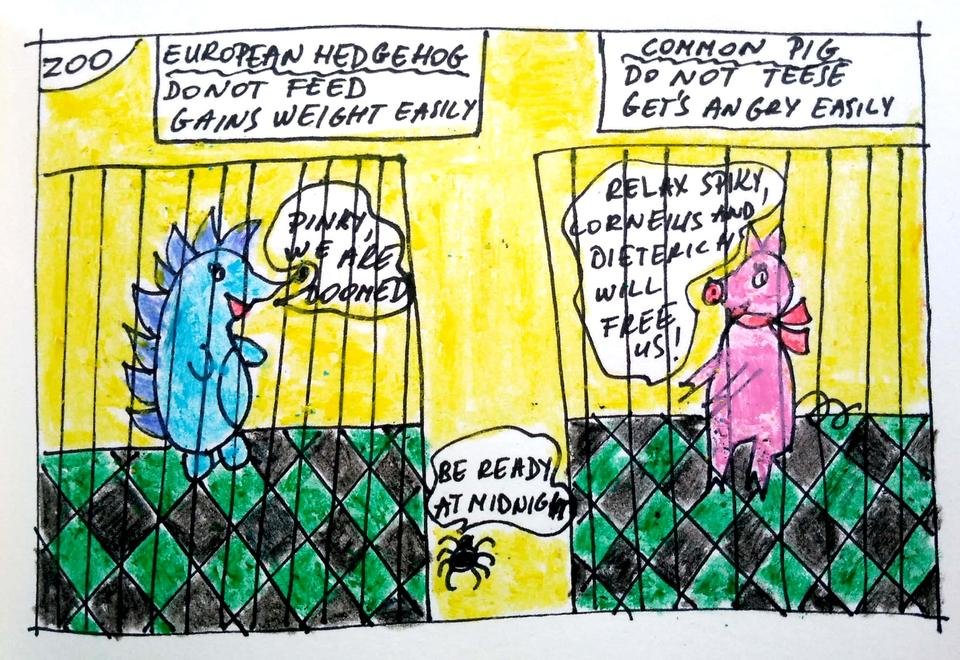 ZOO
EUROPEAN HEDGEHOG
DO NOT FEED
GAINS WEIGHT EASILY
COMMON PIG
DO NOT TEESE
GET'S ANGRY EASILY
PINKY,
WE ARE
DOOMED
RELAX SPIKY,
CORNELIUS AND
DIETERICUS
WILL
FREE
US!
BE READY
AT MIDNIGHT